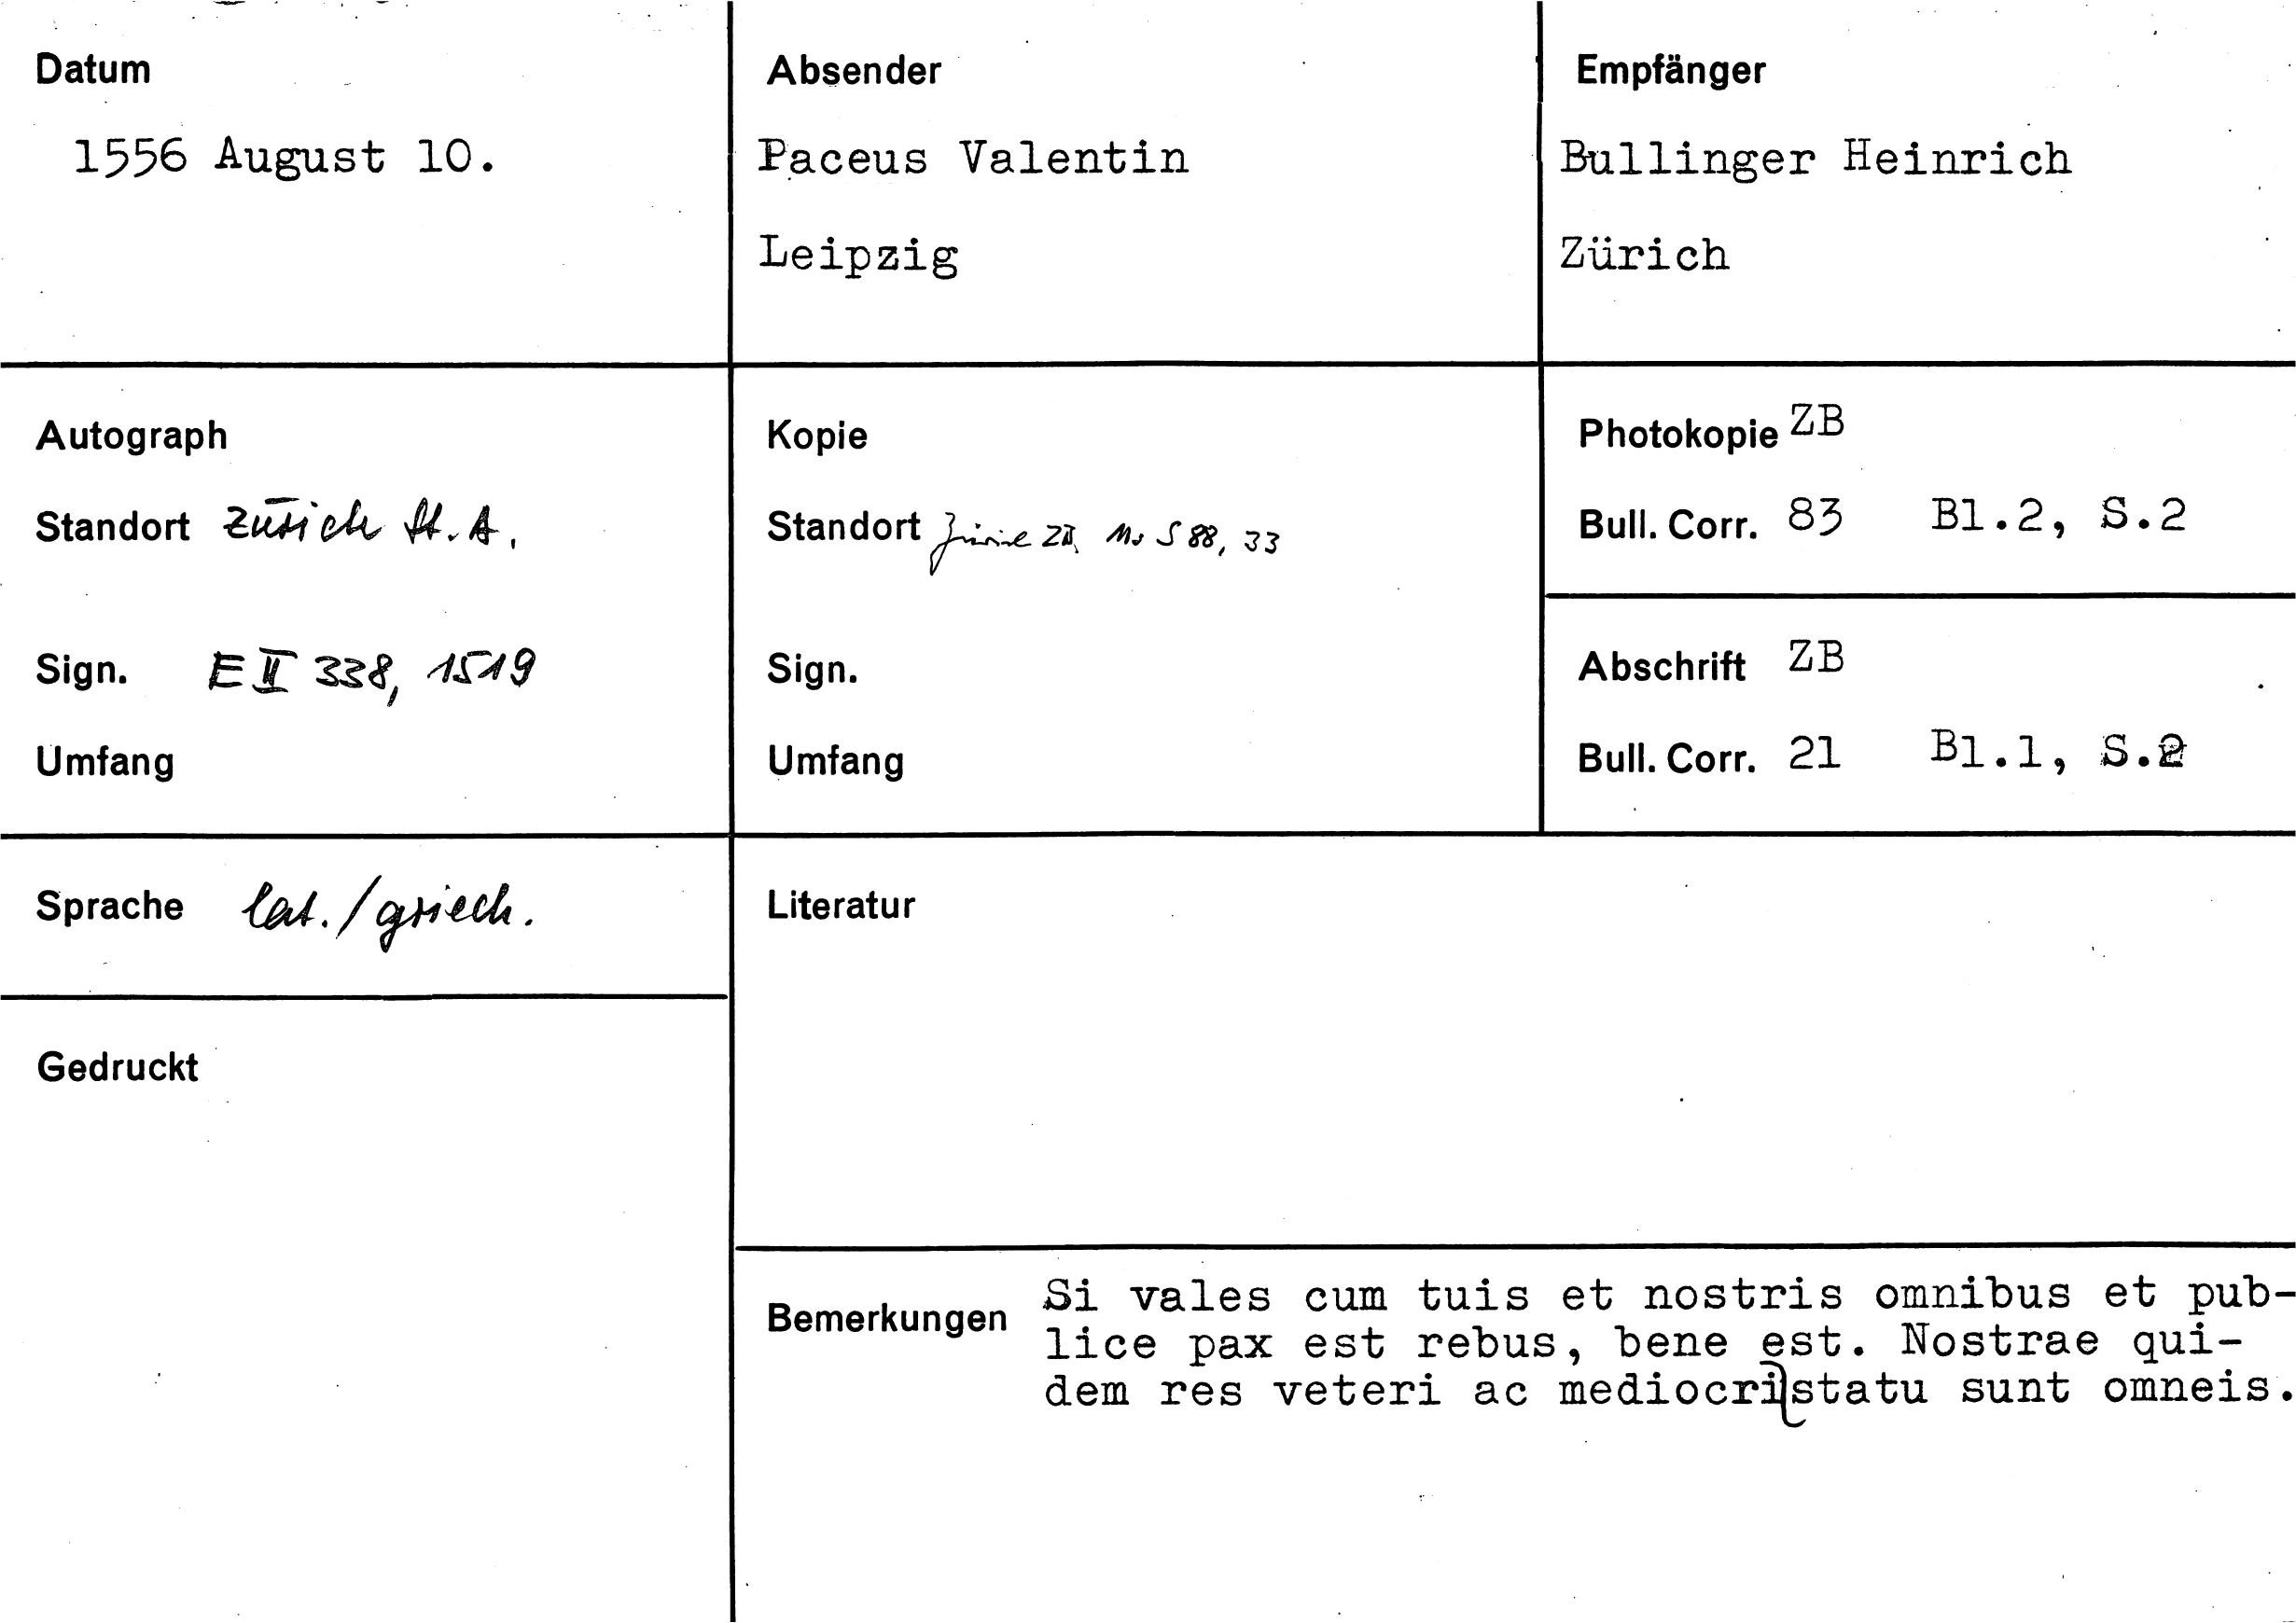 Datum
1556 August 10.
Absender
Paceus Valentin
Leipzig
Empfänger
Bullinger Heinrich
Zürich
Autograph
Standort Zürich St.A.
Sign. E II 338, 1519
Umfang
Kopie
Standort Zürich ZB, Ms S 88, 33
Sign.
Umfang
Photokopie ZB
Bull. Corr. 83 Bl.2, S.2
Abschrift ZB
Bull. Corr. 21 Bl.1, S.2
Sprache lat./griech.
Gedruckt
Literatur
Bemerkungen
Si vales cum tuis et nostris omnibus et pub-
lice pax est rebus, bene est. Nostrae qui-
dem res veteri ac mediocri statu sunt omneis.